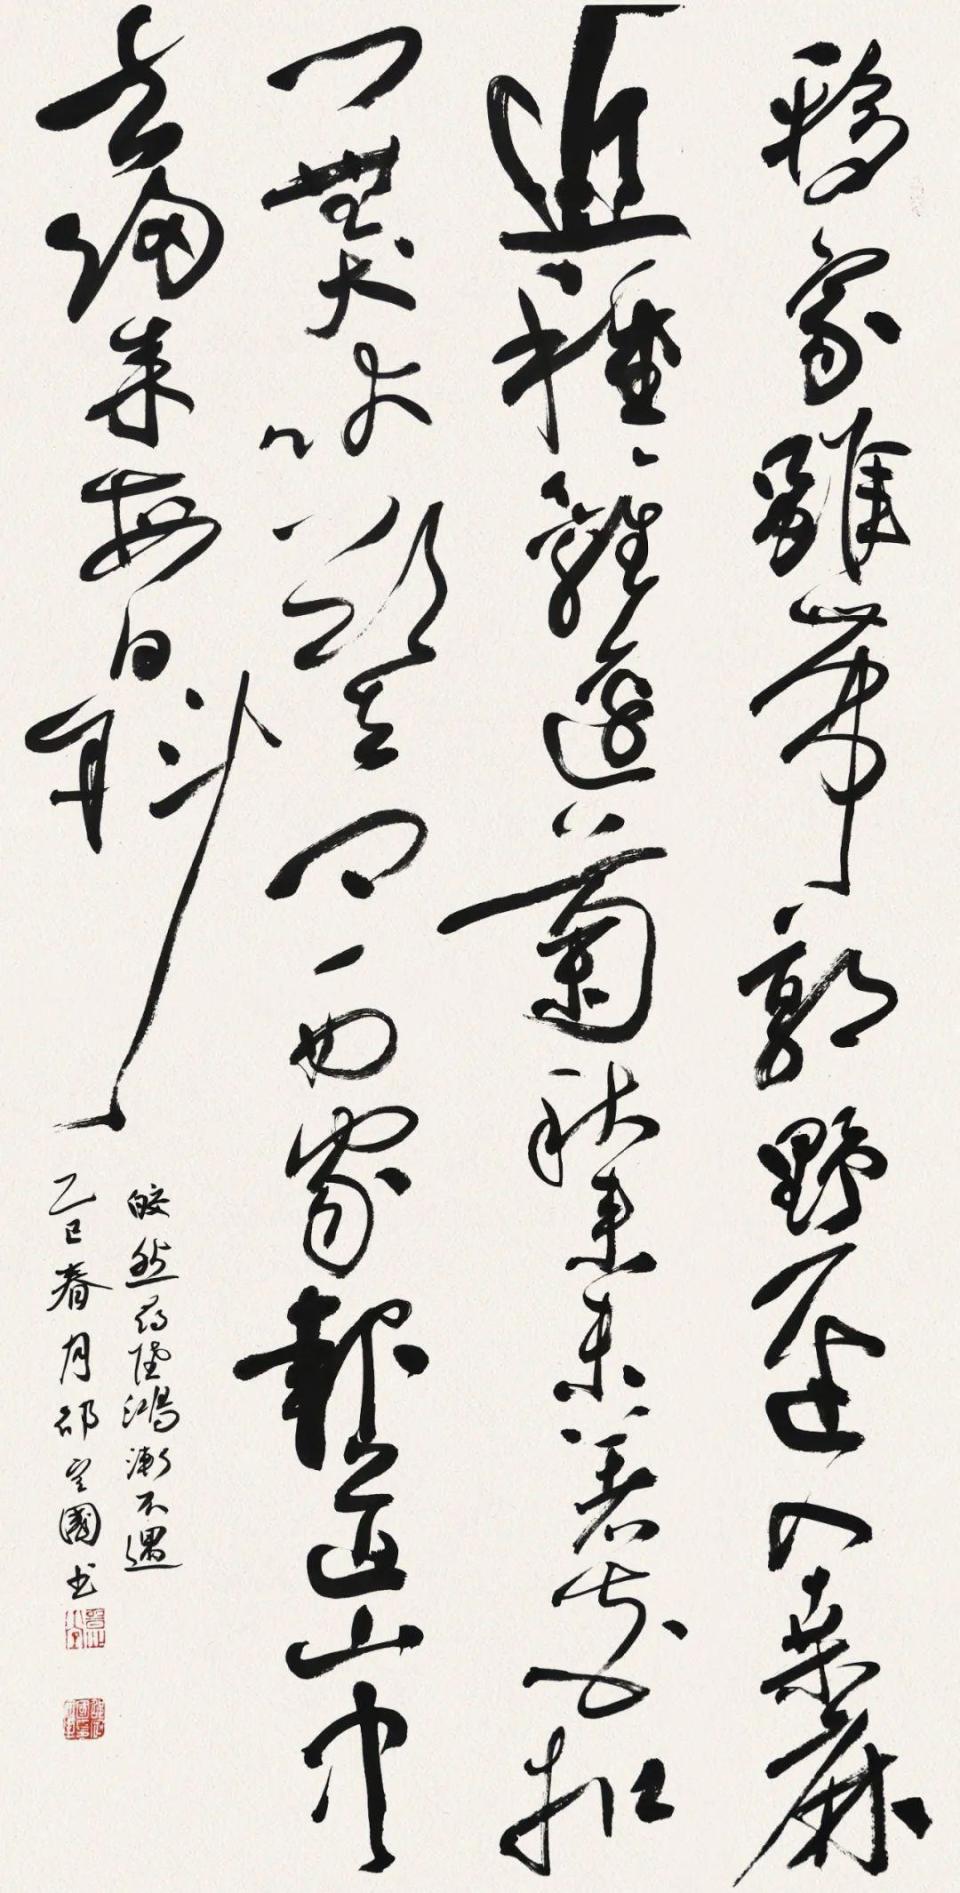 移家雖帶郭野徑入桑麻
近種籬邊菊秋來未著花扣
門無犬吠欲去問西家報道山中
去歸來每日斜
皎然尋陸鴻漸不遇
乙巳春月邵國书